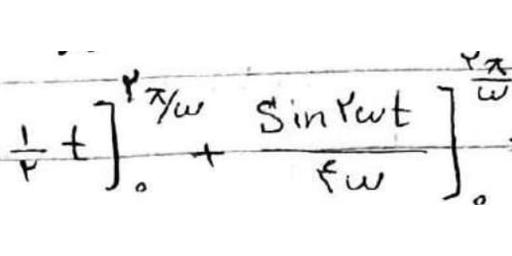 ۱/۲ t]₀^۲π/ω + Sin۲ωt/۴ω]₀^۲π/ω